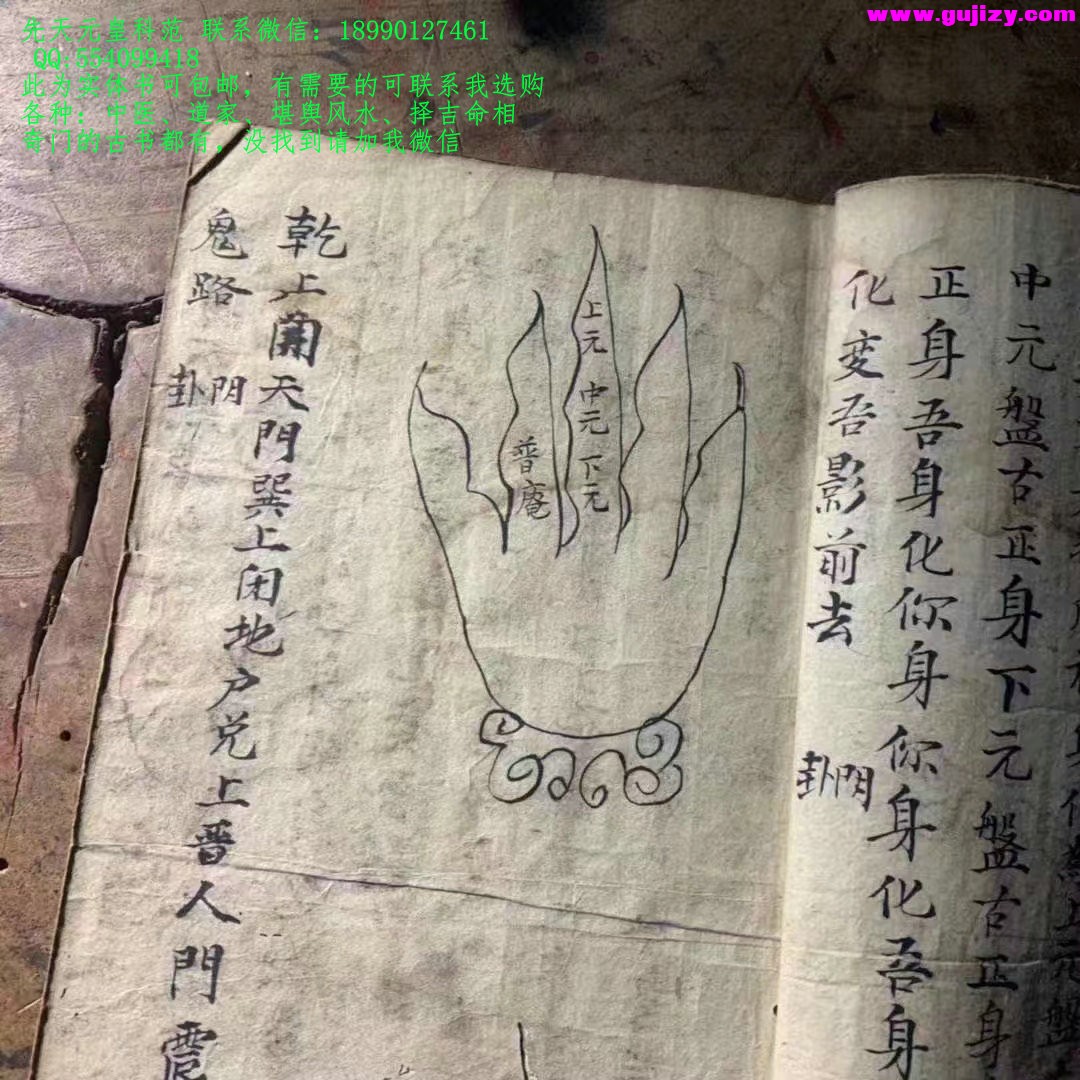 先天元皇科范 联系微信：18990127461
QQ:554099418
此为实体书可包邮，有需要的可联系我选购
各种：中医、道家、堪舆风水、择吉命相
奇门的古书都有，没找到请加我微信
www.gujizy.com
中元盤古正身下元盤古正身
正身吾身化你身你身化吾身
化变吾影前去
卦門
上元中元下元
普庵
乾上開天門巽上闭地户兑上普人門震
鬼路
卦門